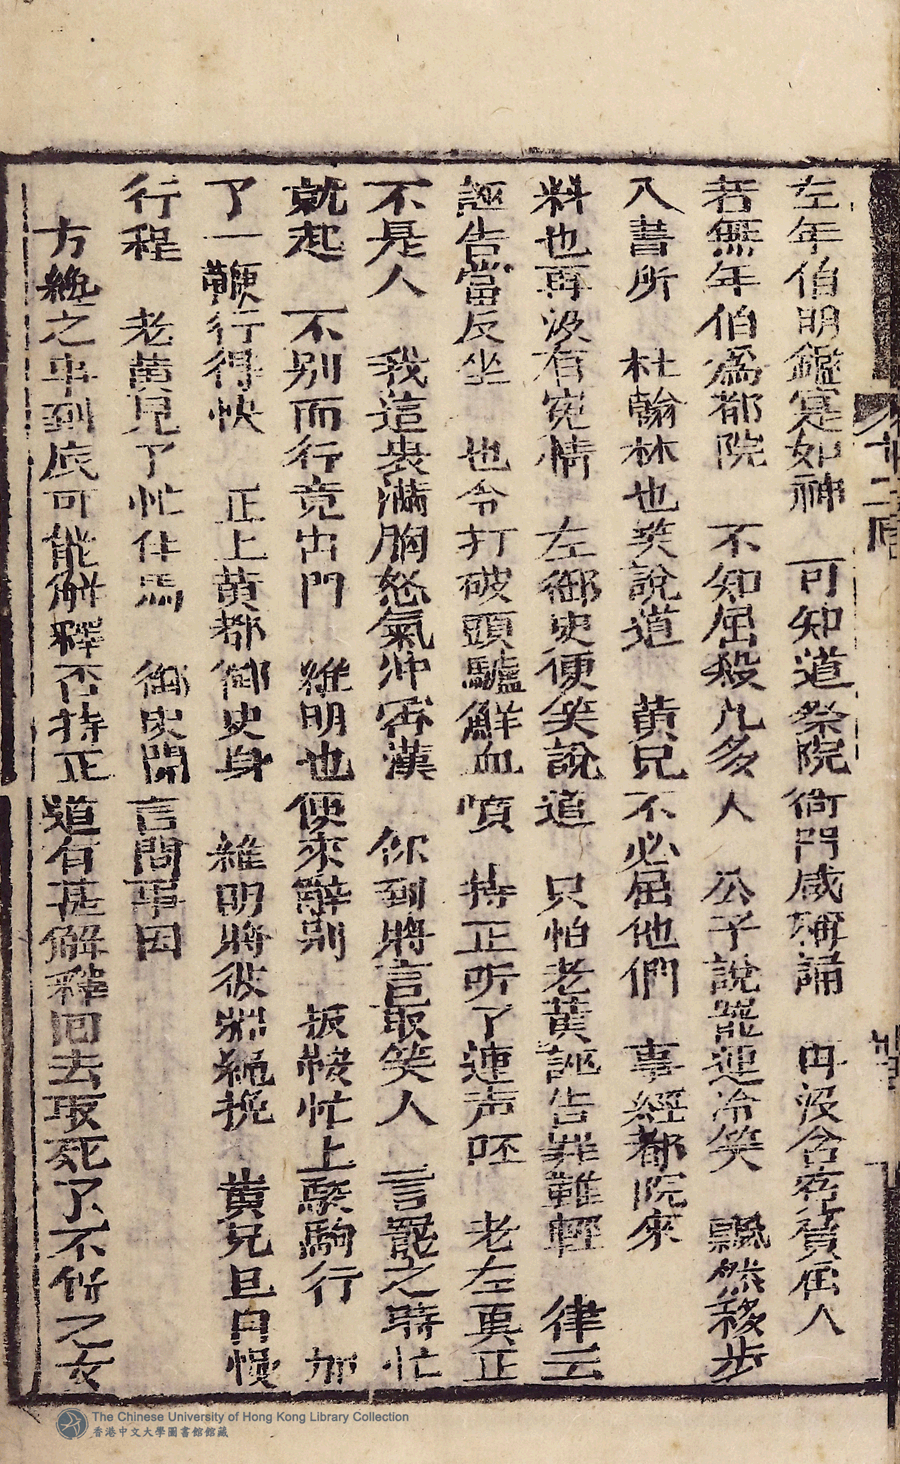 左年伯明鑑寔如神　可知道祭院衙門咸稱誦　再没含寃負屈人
若無年伯為都院　不知屈殺几多人　公子說罷連冷笑　飄然移步
入書所　杜翰林也笑說道　黄兄不必屈他們　事經都院來
料也再没有寃情　左御史便笑說道　只怕老黄誣告罪難輕　律云
誣告當反坐　也令打破頭驢鮮血噴　持正听了連声呸　老左更正
不是人　我這裏滿胸怒氣冲霄漢　你到將言取笑人　言罷之時忙
就起　不别而行竟出門　維明也便來辭别　扳鞍忙上駿駒行　加
了一鞭行得快　正上黄都御史身　維明將彼絲繩挽　黄兄且自慢
行程　老黄見了忙住馬　御史開言問事因
方絶之事到底可能解釋否持正道有甚解釋回去取死了不肖之女
十二回
The Chinese University of Hong Kong Library Collection
香港中文大學圖書館館藏